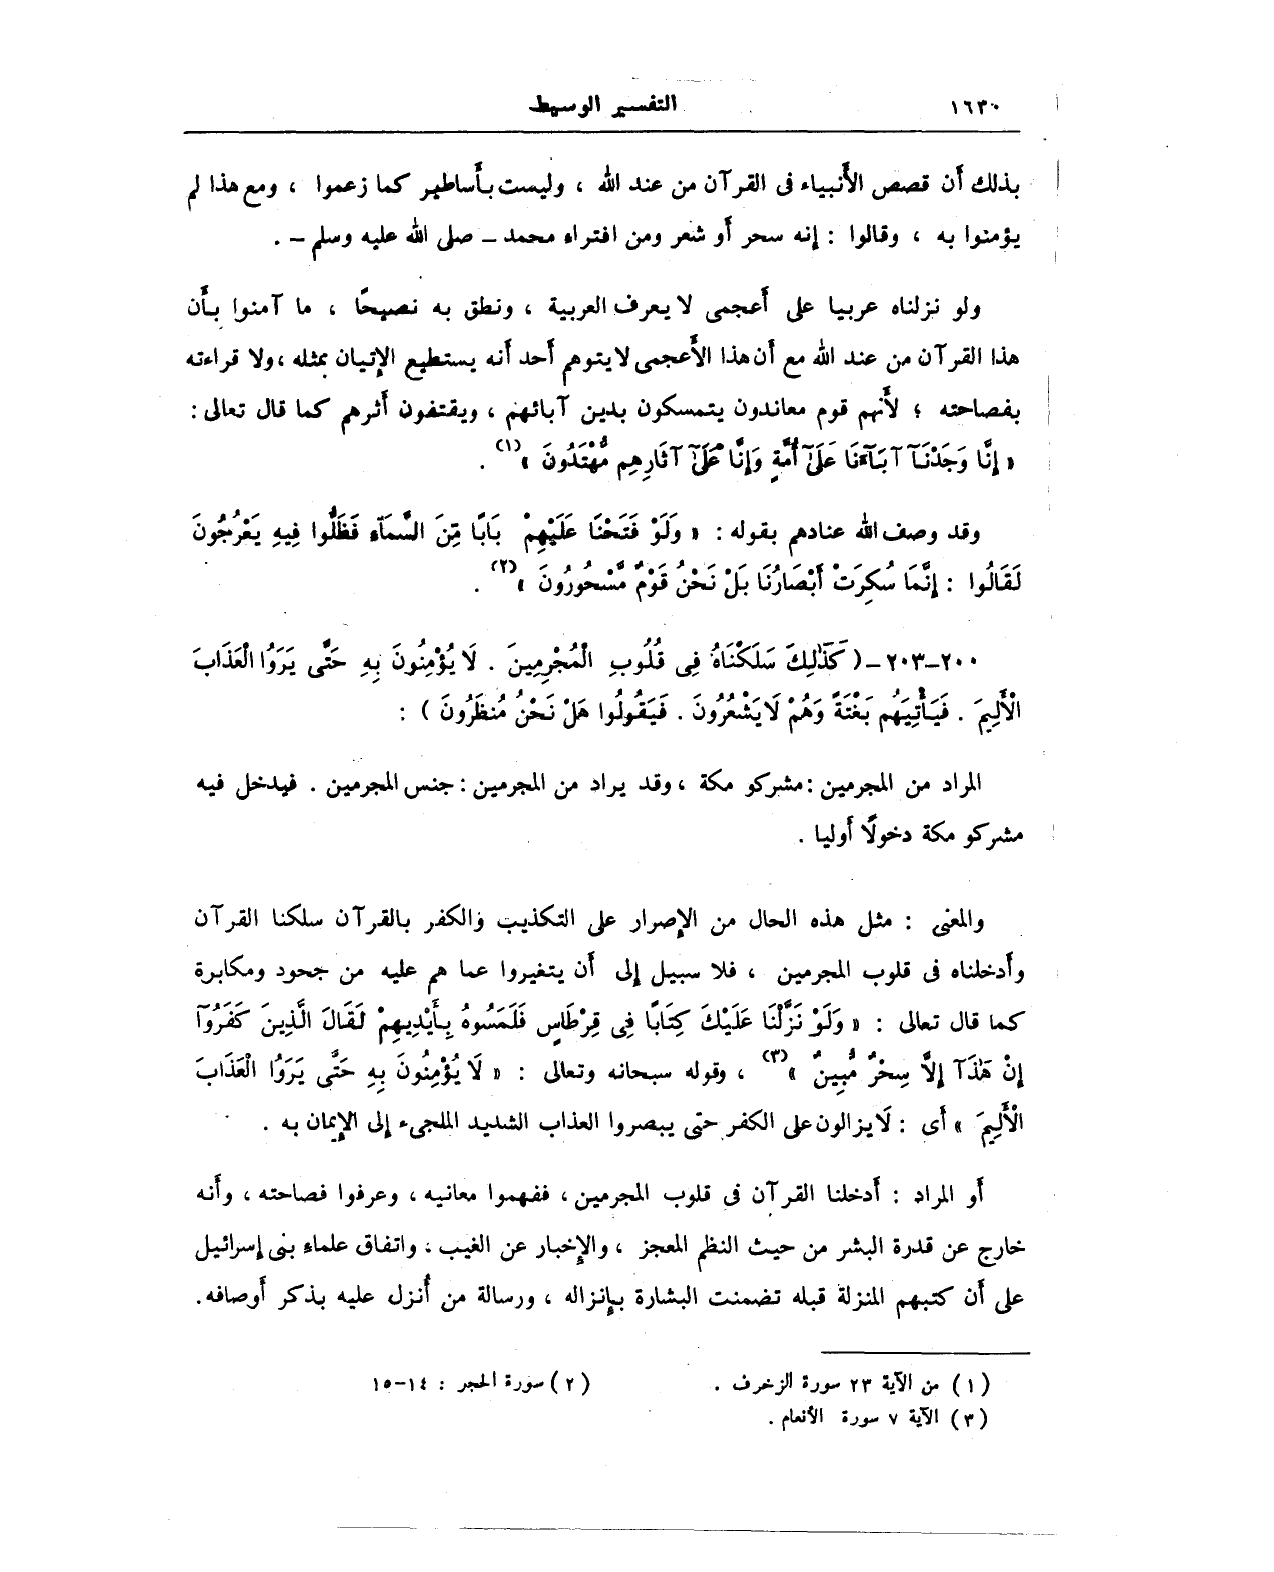 ١٦٣٠ التفسير الوسيط
بذلك أن قصص الأنبياء فى القرآن من عند الله ، وليست بأساطير كما زعموا ، ومع هذا لم
يؤمنوا به ، وقالوا : إنه سحر أو شعر ومن افتراء محمد – صلى الله عليه وسلم – .
ولو نزلناه عربيا على أعجمى لا يعرف العربية ، ونطق به نصيحًا ، ما آمنوا بأن
هذا القرآن من عند الله مع أن هذا الأعجمى لا يتوهم أحد أنه يستطيع الإتيان بمثله ، ولا قراءته
بفصاحته ؛ لأنهم قوم معاندون يتمسكون بدين آبائهم ، ويقتفون أثرهم كما قال تعالى :
« إِنَّا وَجَدْنَآ آبَآءَنَا عَلَىٰٓ أُمَّةٍ وَإِنَّا عَلَىٰٓ آثَارِهِم مُّهْتَدُونَ »(١) .
وقد وصف الله عنادهم بقوله : « وَلَوْ فَتَحْنَا عَلَيْهِمْ بَابًا مِّنَ السَّمَآءِ فَظَلُّوا فِيهِ يَعْرُجُونَ
لَقَالُوا : إِنَّمَا سُكِرَتْ أَبْصَارُنَا بَلْ نَحْنُ قَوْمٌ مَّسْحُورُونَ »(٢) .
٢٠٠–٢٠٣– ( كَذَٰلِكَ سَلَكْنَاهُ فِى قُلُوبِ الْمُجْرِمِينَ . لَا يُؤْمِنُونَ بِهِ حَتَّى يَرَوُا الْعَذَابَ
الْأَلِيمَ . فَيَأْتِيَهُم بَغْتَةً وَهُمْ لَا يَشْعُرُونَ . فَيَقُولُوا هَلْ نَحْنُ مُنظَرُونَ ) :
المراد من المجرمين : مشركو مكة ، وقد يراد من المجرمين : جنس المجرمين . فيدخل فيه
مشركو مكة دخولًا أوليا .
والمعنى : مثل هذه الحال من الإصرار على التكذيب والكفر بالقرآن سلكنا القرآن
وأدخلناه فى قلوب المجرمين ، فلا سبيل إلى أن يتغيروا عما هم عليه من جحود ومكابرة
كما قال تعالى : « وَلَوْ نَزَّلْنَا عَلَيْكَ كِتَابًا فِى قِرْطَاسٍ فَلَمَسُوهُ بِأَيْدِيهِمْ لَقَالَ الَّذِينَ كَفَرُوٓا
إِنْ هَٰذَآ إِلَّا سِحْرٌ مُّبِينٌ »(٣) ، وقوله سبحانه وتعالى : « لَا يُؤْمِنُونَ بِهِ حَتَّى يَرَوُا الْعَذَابَ
الْأَلِيمَ » أى : لَا يزالون على الكفر حتى يبصروا العذاب الشديد الملجىء إلى الإيمان به .
أو المراد : أدخلنا القرآن فى قلوب المجرمين ، ففهموا معانيه ، وعرفوا فصاحته ، وأنه
خارج عن قدرة البشر من حيث النظم المعجز ، والإخبار عن الغيب ، واتفاق علماء بنى إسرائيل
على أن كتبهم المنزلة قبله تضمنت البشارة بإنزاله ، ورسالة من أُنزل عليه بذكر أوصافه .
(١) من الآية ٢٣ سورة الزخرف . (٢) سورة الحجر : ١٤–١٥
(٣) الآية ٧ سورة الأنعام .